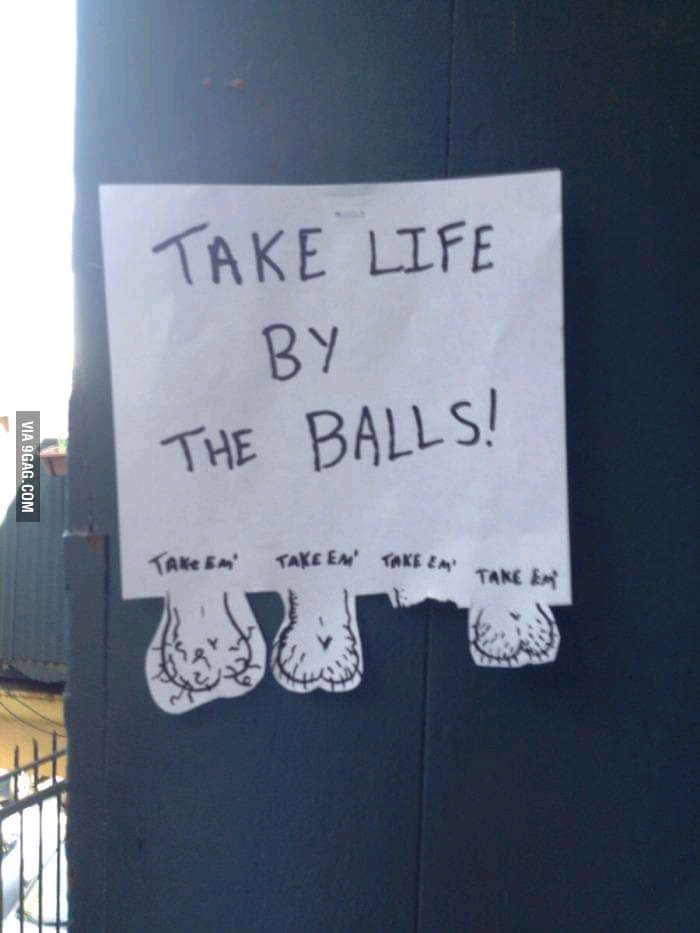 TAKE LIFE
BY
THE BALLS!
TAKE EM' TAKE EM' TAKE EM' TAKE EM'
VIA 9GAG.COM